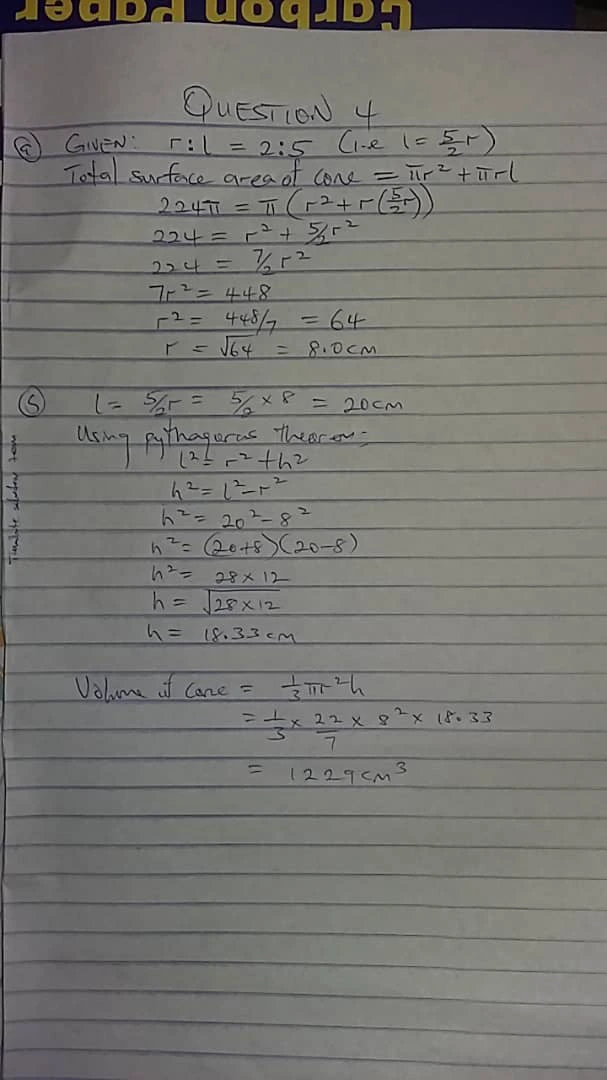 Carbon Paper
QUESTION 4
(a) GIVEN: r:l = 2:5 (i.e l = 5/2 r)
Total surface area of cone = πr² + πrl
224π = π(r² + r(5/2 r))
224 = r² + 5/2 r²
224 = 7/2 r²
7r² = 448
r² = 448/7 = 64
r = √64 = 8.0cm
(5) l = 5/2 r = 5/2 × 8 = 20cm
Using pythagoras theorem:
l² = r² + h²
h² = l² – r²
h² = 20² – 8²
h² = (20+8)(20–8)
h² = 28 × 12
h = √28×12
h = 18.33cm
Volume of cone = 1/3 πr²h
= 1/3 × 22/7 × 8² × 18.33
= 1229cm³